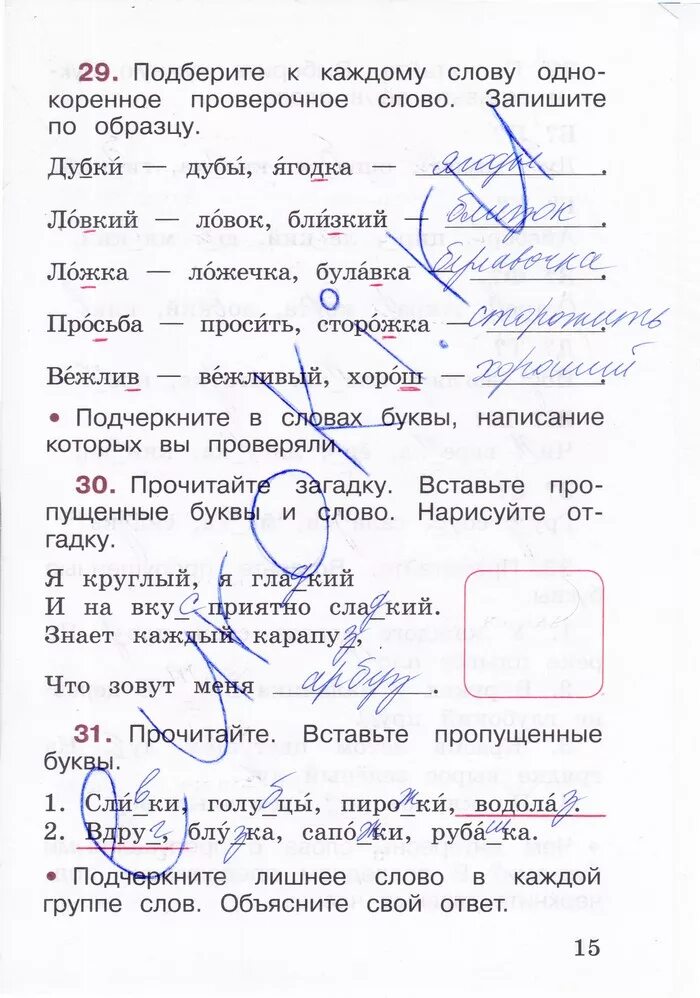 29. Подберите к каждому слову одно-
коренное проверочное слово. Запишите
по образцу.
Дубки́ — дубы́, я́годка — ягоды.
Ло́вкий — ло́вок, бли́зкий — близок.
Ло́жка — ло́жечка, була́вка — булавочка.
Про́сьба — проси́ть, сторо́жка — сторожить.
Ве́жлив — ве́жливый, хоро́ш — хороший.
• Подчеркните в словах буквы, написание
которых вы проверяли.
30. Прочитайте загадку. Вставьте про-
пущенные буквы и слово. Нарисуйте от-
гадку.
Я круглый, я гладкий
И на вкус приятно сладкий.
Знает каждый карапуз,
Что зовут меня арбуз.
31. Прочитайте. Вставьте пропущенные
буквы.
1. Сли́вки, голубцы́, пирожки́, водола́з.
2. Вдруг, блу́зка, сапо́жки, руба́шка.
• Подчеркните лишнее слово в каждой
группе слов. Объясните свой ответ.
15